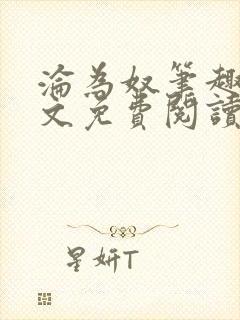 淪為奴筆趣
文免費閱讀
星妍T